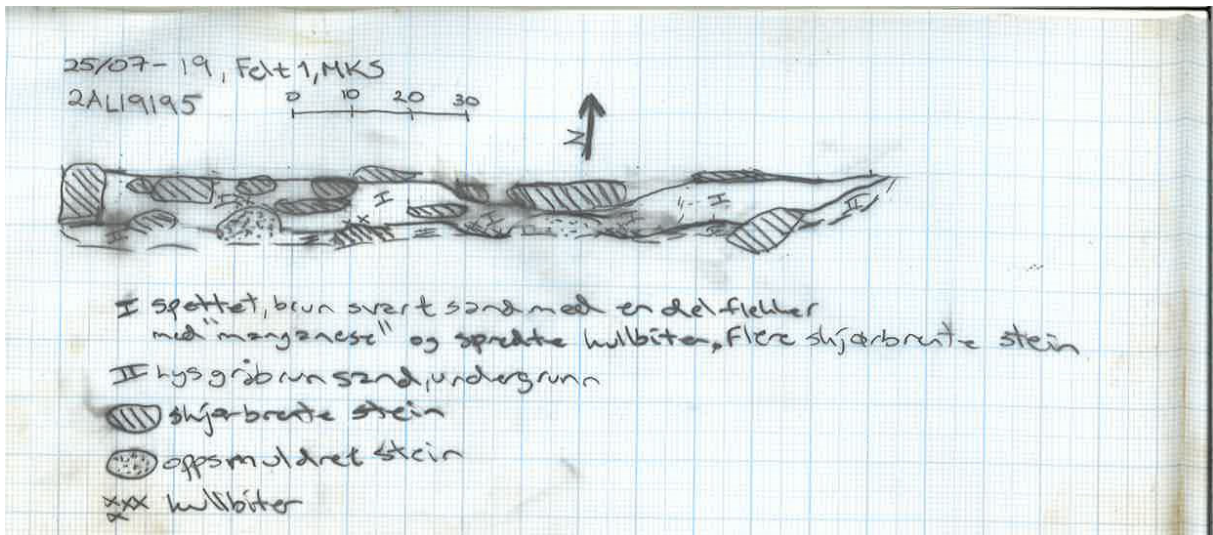 25/07-19, Felt 1, MKS
2AL19195
0 10 20 30
N
I I I I I I II
I spettet, brun svart sand med en del flekker
med "manganese" og spredte kullbiter, Flere skjørbrente stein
II Lys gråbrun sand, undergrunn
skjørbrente stein
oppsmuldret stein
xxx kullbiter